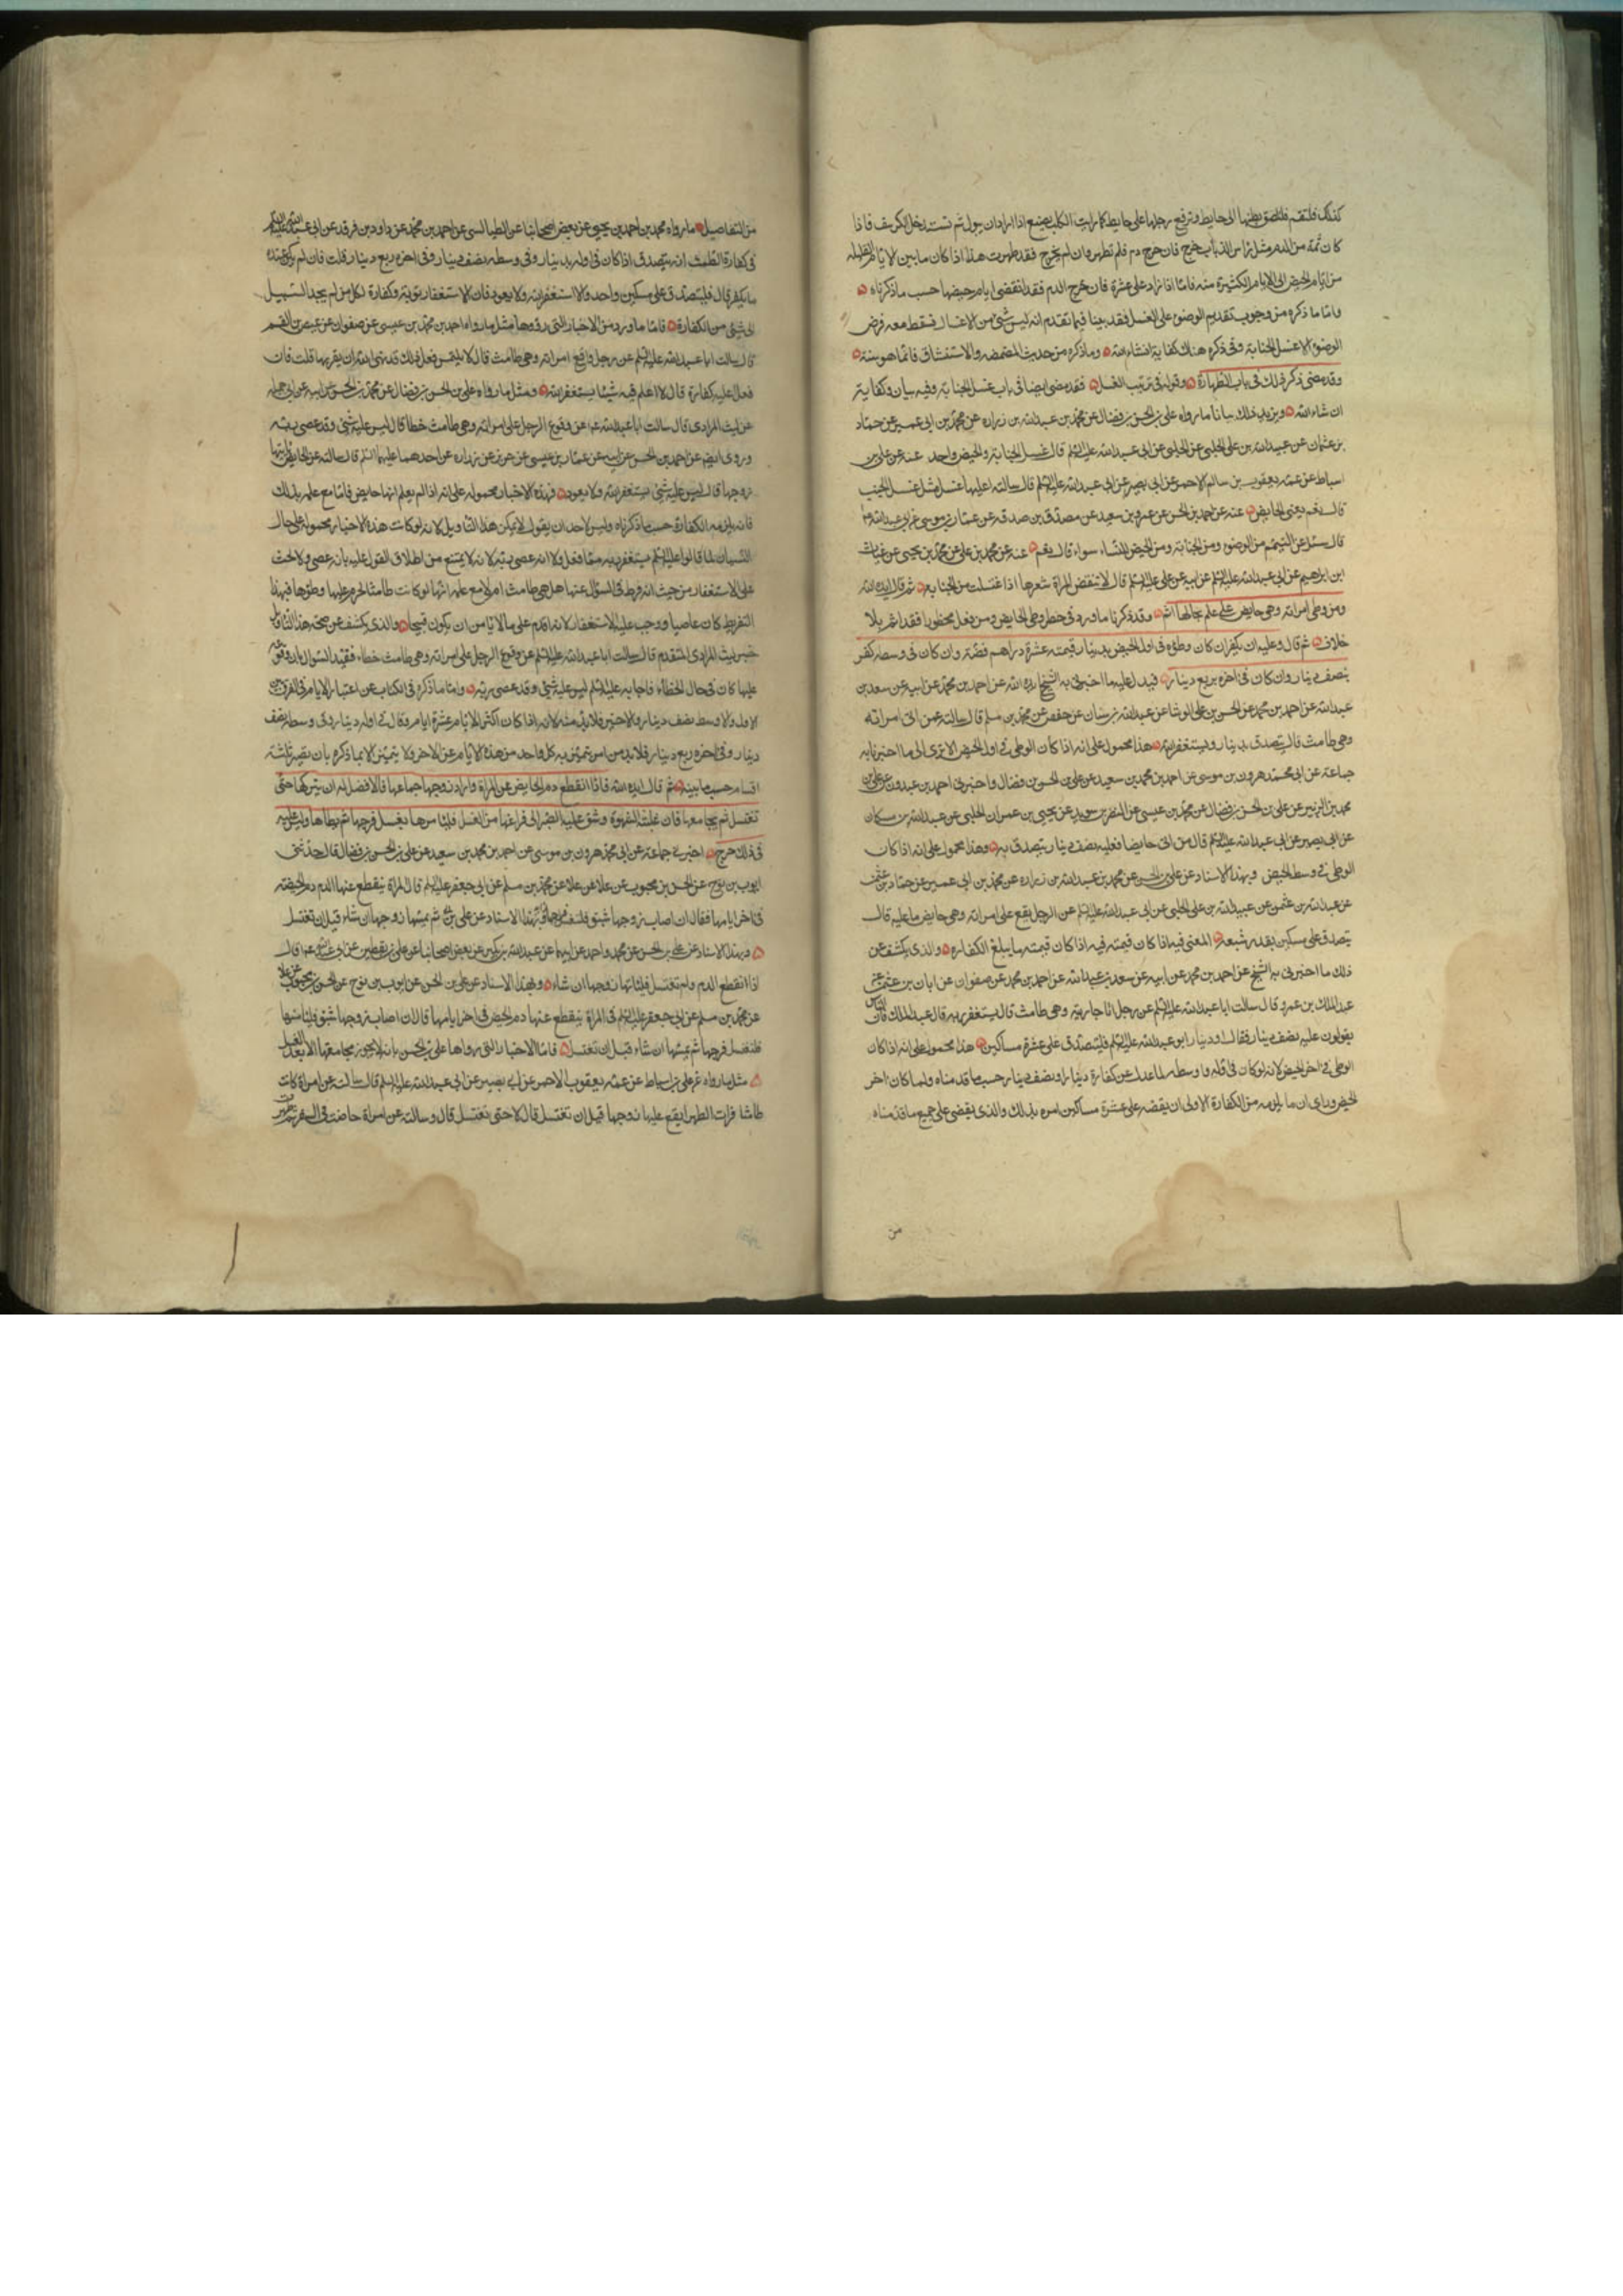 كذلك فلتقم فلتلصق بطنها الى حايط وترفع رجلها على حايط كما رايت الكلب يصنع اذا اراد ان يبول ثم تستدخل الكرسف فاذا
كان ثمة من الدم مثل راس الذباب خرج فان خرج دم فلم تطهر وان لم يخرج فقد طهرت هذا اذا كان ما بين لايام القليله
من ايام الحيض الى الايام الكثيرة منه فاما اذا زاد على عشرة فان خرج الدم فقد انقضى ايام حيضها حسب ما ذكرناه
واما ما ذكره من وجوب تقديم الوضوء على الغسل فقد بينا فيما تقدم انه ليس شئ من الاغسال فسقط معه فرض
الوضوء الا غسل الجنابة وفى ذكره هناك كفاية انشاء الله وما ذكره من حديث المضمضه والاستنشاق فانما هو سنة
وقد مضى ذكر ذلك فى باب الطهارة وقوله فى ترتيب الغسل فقد مضى ايضا فى باب غسل الجنابة وفيه بيان وكفاية
ان شاء الله ويزيد ذلك بيانا ما رواه على بن الحسن بن فضال عن محمد بن عبدالله بن زراره عن محمد بن ابى عمير عن حماد
بن عثمان عن عبيدالله بن على الحلبى عن الحلبى عن ابى عبدالله عليه السلم قال غسل الجنابة والحيض واحد عنه عن على بن
اسباط عن عمه يعقوب بن سالم الاحمر عن ابى بصير عن ابى عبدالله عليه السلم قال سالته اعليها غسل مثل غسل الجنب
قال نعم يعنى الحايض عنه عن احمد بن الحسن عن عمرو بن سعيد عن مصدق بن صدقه عن عمار بن موسى عن ابى عبدالله ع
قال سئل عن التيمم من الوضوء ومن الجنابة ومن الحيض للنساء سواء قال نعم عنه عن محمد بن على عن محمد بن يحيى عن غياث
ابن ابراهيم عن ابى عبدالله عليه السلم عن ابيه عن على عليه السلم قال لا تنقض المراة شعرها اذا اغتسلت من الجنابه ثم قال ايده الله
ومن وطى امراته وهى حايض على علم بحالها اثم وقد ذكرنا ما ورد فى حظر وطى الحايض ومن فعل محظورا فقد اثم بلا
خلاف ثم قال وعليه ان يكفر ان كان وطؤه فى اول الحيض بدينار قيمته عشرة دراهم فضة وان كان فى وسطه كفر
بنصف دينار وان كان فى اخره بربع دينار فيدل عليه ما اخبرنى به الشيخ ايده الله عن احمد بن محمد عن ابيه عن سعد بن
عبدالله عن احمد بن محمد عن الحسن بن على الوشا عن عبدالله بن سنان عن حفص عن محمد بن مسلم قال سالته عمن اتى امراته
وهى طامث قال يتصدق بدينار ويستغفر الله هذا محمول على انه اذا كان الوطى فى اول الحيض الا ترى الى ما اخبرنا به
جماعة عن ابى محمد هرون بن موسى عن احمد بن محمد بن سعيد عن على بن الحسن بن فضال واخبرنى احمد بن عبدون عن على بن
محمد بن الزبير عن على بن الحسن بن فضال عن محمد بن عيسى عن النضر بن سويد عن يحيى بن عمران الحلبى عن عبدالله بن مسكان
عن ابى بصير عن ابى عبدالله عليه السلم قال من اتى حايضا فعليه نصف دينار يتصدق به وهذا محمول على انه اذا كان
الوطى فى وسط الحيض وبهذا الاسناد عن على بن الحسن عن محمد بن عبدالله بن زراره عن محمد بن ابى عمير عن حماد بن عثمن
عن عبيدالله بن على الحلبى عن ابى عبدالله عليه السلم عن الرجل يقع على امراته وهى حايض ما عليه قال
يتصدق على مسكين بقدر شبعه المعنى فيه اذا كان قيمته فيه اذا كان قيمته ما يبلغ الكفاره والذى يكشف عن
ذلك ما اخبرنى به الشيخ عن احمد بن محمد عن ابيه عن سعد بن عبدالله عن احمد بن محمد عن صفوان عن ابان بن عثمن عن
عبدالملك بن عمرو قال سالت ابا عبدالله عليه السلم عن رجل اتا جاريته وهى طامث قال يستغفر ربه قال عبدالملك فان الناس
يقولون عليه نصف دينار فقال او دينار ابو عبدالله عليه السلم فليتصدق على عشرة مساكين هذا محمول على انه اذا كان
الوطى فى اخر الحيض لانه لو كان فى اوله او وسطه لما عدل عن كفارة دينار او نصف دينار حسب ما قدمناه ولما كان اخر
الحيض وراى ان ما يلزمه من الكفارة الاولى ان يفضه على عشرة مساكين امره بذلك والذى يقضى على جميع ما قدمناه
من
من التفاصيل ما رواه محمد بن احمد بن يحيى عن بعض اصحابنا عن الطيالسى عن احمد بن محمد عن داود بن فرقد عن ابى عبدالله عليه السلم
فى كفارة الطمث انه يتصدق اذا كان فى اوله بدينار وفى وسطه بنصف دينار وفى اخره ربع دينار قلت فان لم يكن عنده
ما يكفر قال فليتصدق على مسكين واحد والا استغفر الله ولا يعود فان الاستغفار توبة وكفارة لكل من لم يجد السبيل
الى شئ من الكفارة فاما ما ورد من الاخبار التى رووها مثل ما رواه احمد بن محمد بن عيسى عن صفوان عن عيص بن القسم
قال سالت ابا عبدالله عليه السلم عن رجل واقع امراته وهى طامث قال لا يلتمس فعل ذلك قد نهى الله ان يقربها قلت فان
فعل اعليه كفارة قال لا اعلم فيه شيئا يستغفر الله ومثل ما رواه على بن الحسن بن فضال عن محمد بن الحسن عن ابيه عن ابى جميله
عن ليث المرادى قال سالت ابا عبدالله ع عن وقوع الرجل على امراته وهى طامث خطا قال ليس عليه شئ وقد عصى ربه
وروى ايضا عن احمد بن الحسن عن ابيه عن حماد بن عيسى عن حريز عن زراره عن احدهما عليهما السلم قال سالته عن الحايض ياتيها
زوجها قال ليس عليه شئ يستغفر الله ولا يعود فهذه الاخبار محمولة على انه اذا لم يعلم انها حايض فاما مع علمه بذلك
فانه يلزمه الكفارة حسب ما ذكرناه وليس لاحد ان يقول لا يمكن هذا التاويل لانه لو كانت هذه الاخبار محمولة على حال
النسيان لما قالوا عليهم السلم يستغفر ربه مما فعل ولا انه عصى ربه لانه لا يمتنع من اطلاق القول عليه بانه عصى ولا الحث
على الاستغفار من حيث انه فرط فى السؤال عنها هل هى طامث ام لا مع علمه انها لو كانت طامثا لحرم عليها وطؤها فبهذا
التفريط كان عاصيا ووجب عليه الاستغفار لانه اقدم على ما لا يامن ان يكون قبيحا والذى يكشف عن صحة هذا التاويل
خبر ليث المرادى المتقدم قال سالت ابا عبدالله عليه السلم عن وقوع الرجل على امراته وهى طامث خطاء فقيد السؤال بان وقوعه
عليها كان فى حال الخطاء فاجابه عليه السلم ليس عليه شئ وقد عصى ربه واما ما ذكره فى الكتاب عن اعتبار الايام فى الفرق بين
الاول والاوسط نصف دينار والاخير فلابد منه لانه اذا كان اكثر الايام عشرة ايام وقال فى اوله دينار وفى وسطه نصف
دينار وفى اخره ربع دينار فلابد من امر يتميز به كل واحد من هذه الايام عن الاخر ولا يتميز الا بما ذكره بان يصير ثلثة
اقسام حسب ما بينه ثم قال ايده الله فاذا انقطع دم الحايض عن المراة واراد زوجها جماعها فالافضل له ان يتركها حتى
تغتسل ثم يجامعها فان غلبته الشهوة وشق عليه الصبر الى فراغها من الغسل فليامرها بغسل فرجها ثم يطاها وليس عليه
فى ذلك حرج اخبرنى جماعة عن ابى محمد هرون بن موسى عن احمد بن محمد بن سعيد عن على بن الحسن بن فضال قال حدثنى
ايوب بن نوح عن الحسن بن محبوب عن علا عن محمد بن مسلم عن ابى جعفر عليه السلم قال المراة ينقطع عنها الدم دم الحيضه
فى اخر ايامها فقال ان اصاب زوجها شبق فلتغسل فرجها ثم يمسها زوجها ان شاء قبل ان تغتسل
وبهذا الاسناد عن على بن الحسن عن محمد واحمد عن ابيهما عن عبدالله بن بكير عن بعض اصحابنا عن على بن يقطين عن ابى عبدالله ع قال
اذا انقطع الدم ولم تغتسل فلياتها زوجها ان شاء وبهذا الاسناد عن على بن الحسن عن ايوب بن نوح عن الحسن بن محبوب عن علا
عن محمد بن مسلم عن ابى جعفر عليه السلم فى المراة ينقطع عنها دم الحيض فى اخر ايامها قال ان اصاب زوجها شبق فليامرها
فلتغسل فرجها ثم يمسها ان شاء قبل ان تغتسل فاما الاخبار التى رواها على بن الحسن بانه لا يجوز مجامعتها الا بعد الغسل
مثل ما رواه عن على بن اسباط عن عمه يعقوب الاحمر عن ابى بصير عن ابى عبدالله عليه السلم قال سالته عن امراة كانت
طامثا فرات الطهر ايقع عليها زوجها قبل ان تغتسل قال لا حتى تغتسل قال وسالته عن امراة حاضت فى السفر ثم طهرت